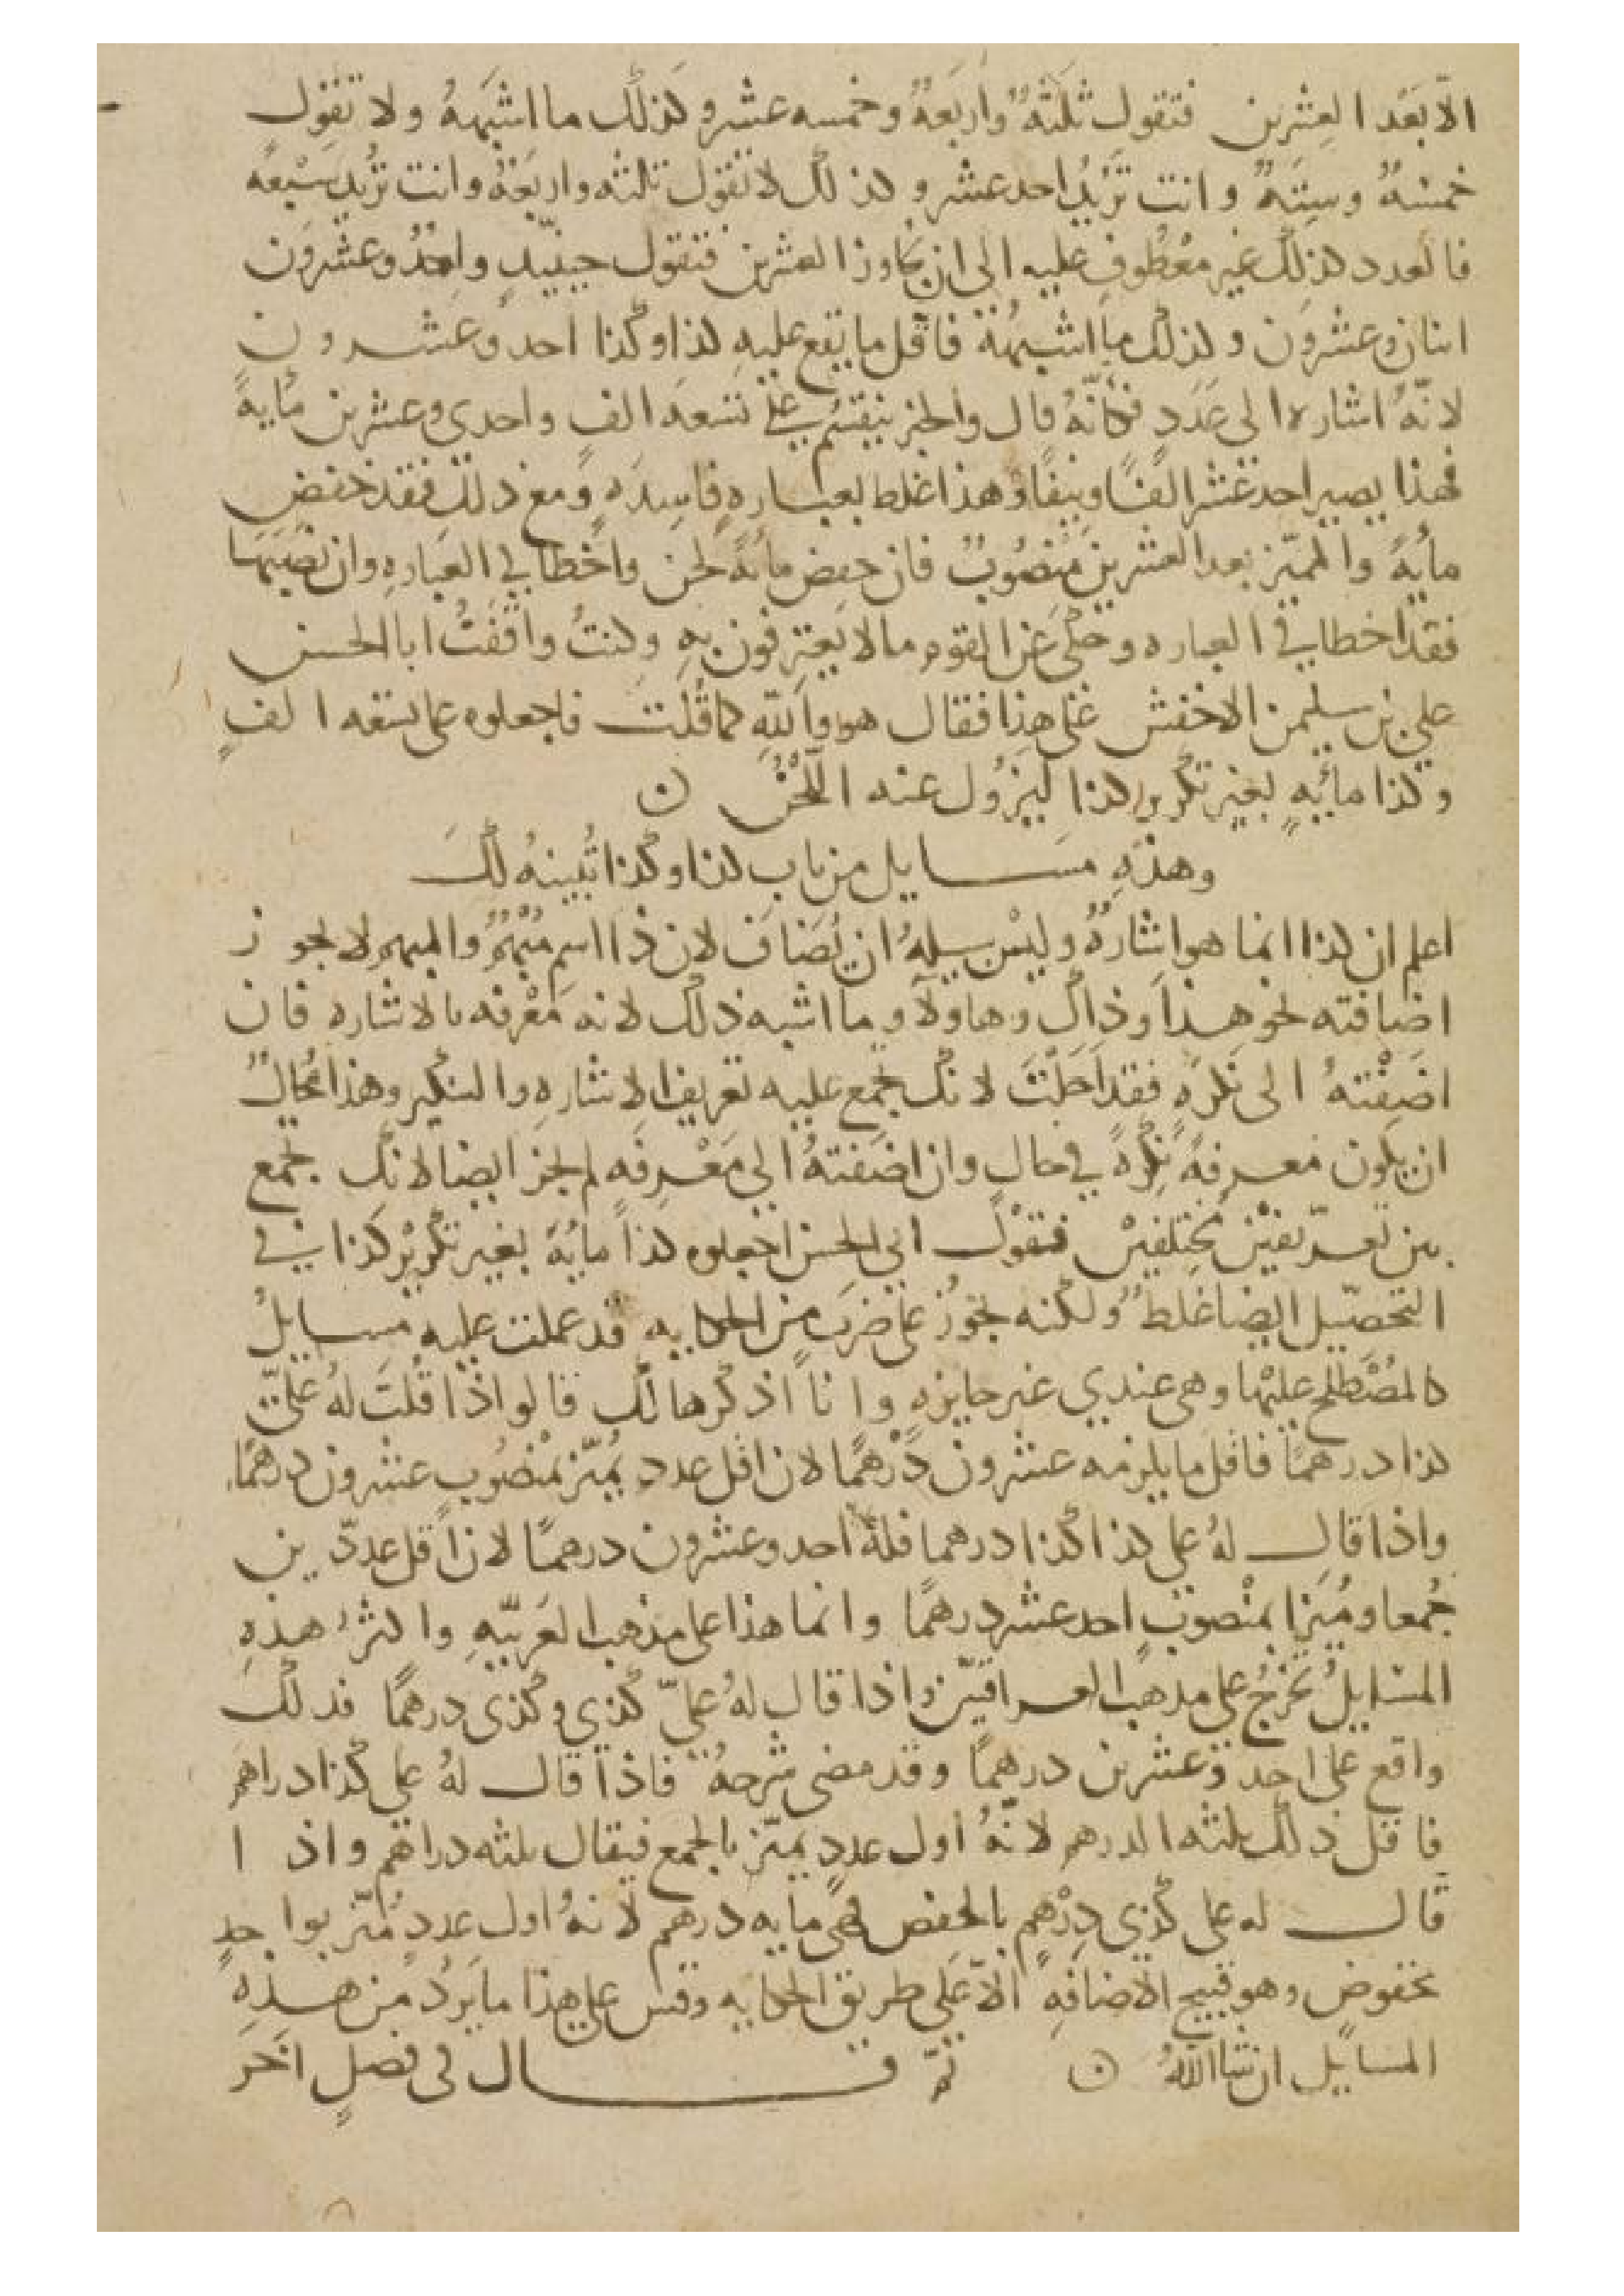 الّا بَعْد العِشْرين فتقول ثلثةٌ واربَعةٌ وخمسه عشر وكذلك ما اشبَههُ ولا تقول
خمسةٌ وسِتّةٌ وانت تُريْدُ احد عشر وكذلك لا تقول ثلثه واربَعَةٌ وانت تريد سَبْعَه
فالعدد كذلك غير معْطُوفٍ عليه الى ان يجاوز العشرين فتقول حينئيدٍ واحدٌ وعشرون
اثنان وعشرون وكذلك ما اشبههُ فاقل ما يقع عليهِ كذا وكذا احد وعشرون
لانّهُ اشاره الى عَدَدٍ فكانّه قال والجزر ينقسمُ على تسعه الف واحدى وعشرين مايةً
فهذا يصير احد عشر الفًا ونيفًا وهذا غلط بعبارهٍ فاسِدَهٍ ومع ذلك فقد خفض
مايةً والمميّز بعد العشرين منصُوبٌ فان خفض مايةً لحن واخطا في العبارهِ وان نصَبَها
فقد اخطا في العباره وحكى عن القوم ما لا يعترفون بهِ وكنتُ واقفتُ ابا الحسن
علي بن سليمن الاخفش على هذا فقال هو واللّهِ كما قُلتَ فاجعلوه على تسعه الفٍ
وكذا مائيهٍ بغير تكرير كذا ليزُول عنه اللّحْنُ ن
وهذهِ مسَايل من باب كذا وكذا نُبينهُ لكَ
اعلم ان كذا انما هو اشارةٌ وليْس سبيلهُ ان يُضَافَ لان ذا اسم مُبْهَمٌ والمبهم لا يجوز
اضافته نحو هذا وذاك وهاولآ وما اشبه ذلك لانه مَعْرفه بالاشاره فان
اضَفْتهُ الى نكرهٍ فقد احَلْتَ لانك تجمع عليه تعريف الاشارهِ والتنكير وهذا مُحالٌ
ان يكون معرفةً نكرةً في حالٍ وان اضَفتهُ الى مَعْرِفَه لم يجز ايضا لانك تجمع
بين تعريفيْن مُختلفيْن فتقوْل ابي الحسن اجعلوه كذا مايُةَ بغير تكْريْر كذا في
التحصيل ايضا غلطٌ ولكنه يجوزُ على ضربٍ من الحكايه قد عملت عليه مسايلُ
كالمُصْطلح عليْها وهى عندي غير جايزهٍ وانا اذكرها لك قالو اذا قلتَ لهُ علىّ
كذا درهمًا فاقل ما يلزمه عشرون دِرْهمًا لان اقل عدد يُميّز بمنْصُوب عشرون درهمًا
واذا قال لهُ على كذا كذا درهما فلهُ احد وعشرون درهمًا لان اقل عددّين
جُمعا ومُيزا بمنْصوبٍ احد عشر درهمًا وانما هذا على مذهب العَربيّهِ واكثرُ هذهِ
المسَايلُ تَخْرُجُ على مذهَب العراقيّين واذا قال لهُ علىّ كذى وكذى درهمًا فذلك
واقع على احد وعشرين درهمًا وقد مضى شرحهُ فاذا قال لهُ على كذا دراهم
فاقل ذلك ثلثه الدرهم لانّهُ اول عددٍ يميّز بالجمع فيقال ثلثه دراهم واذا
قال له على كذى دِرْهمٍ بالخفض فهي مايه درهم لانهُ اول عددٍ مُيّز بواحدٍ
مخفوض وهو قبيح الاضافهِ الّا عَلى طريق الحكايه وقس على هذا ما يَردُ من هذهِ
المسايل ان شا اللّهُ ن ثمّ قال فى فصلٍ اخَرَ